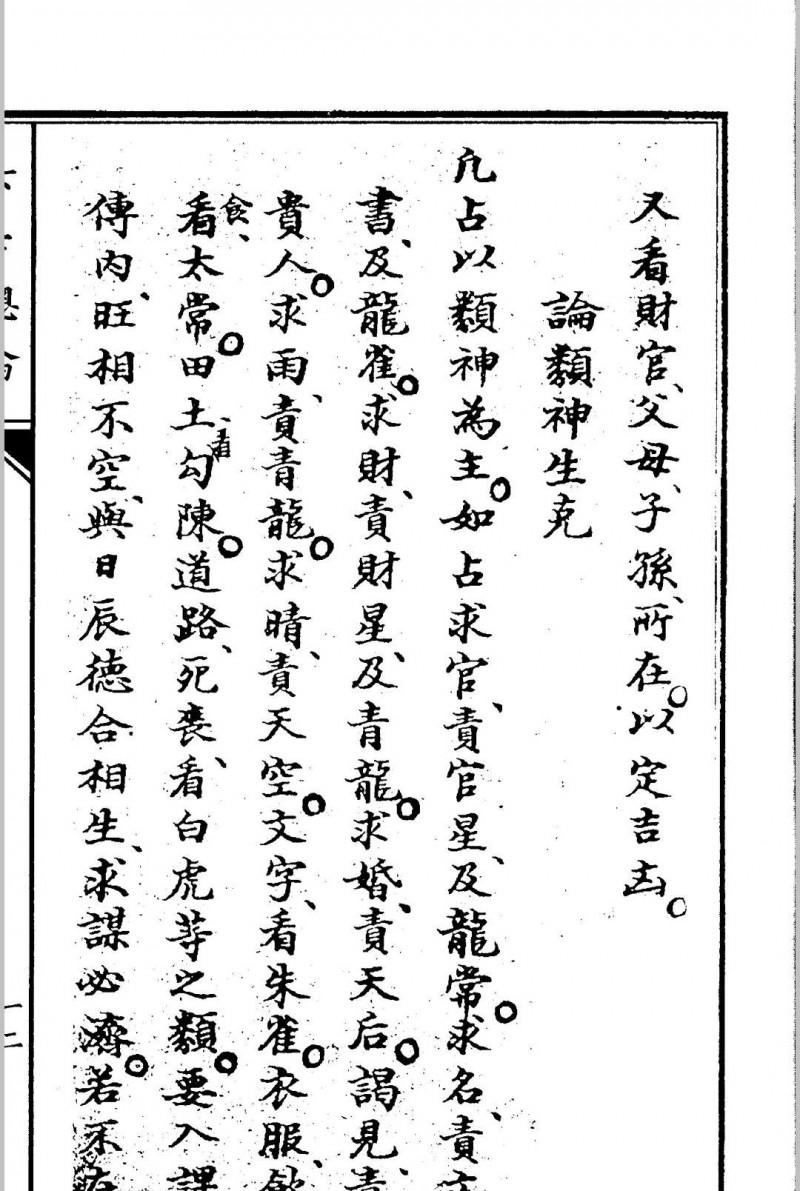 又看財官、父母、子孫、所在。以定吉凶。
論類神生克
凡占以類神為主。如占求官、責官星、及龍常。求名、責文
書、及龍雀。求財、責財星、及青龍。求婚、責天后。謁見、責
貴人。求雨、責青龍。求晴、責天空。文字、看朱雀。衣服、飲
食、看太常。田土、看勾陳。道路、死喪、看白虎等之類。要入課
傳內、旺相不空、與日辰德合相生、求謀必濟。若不在